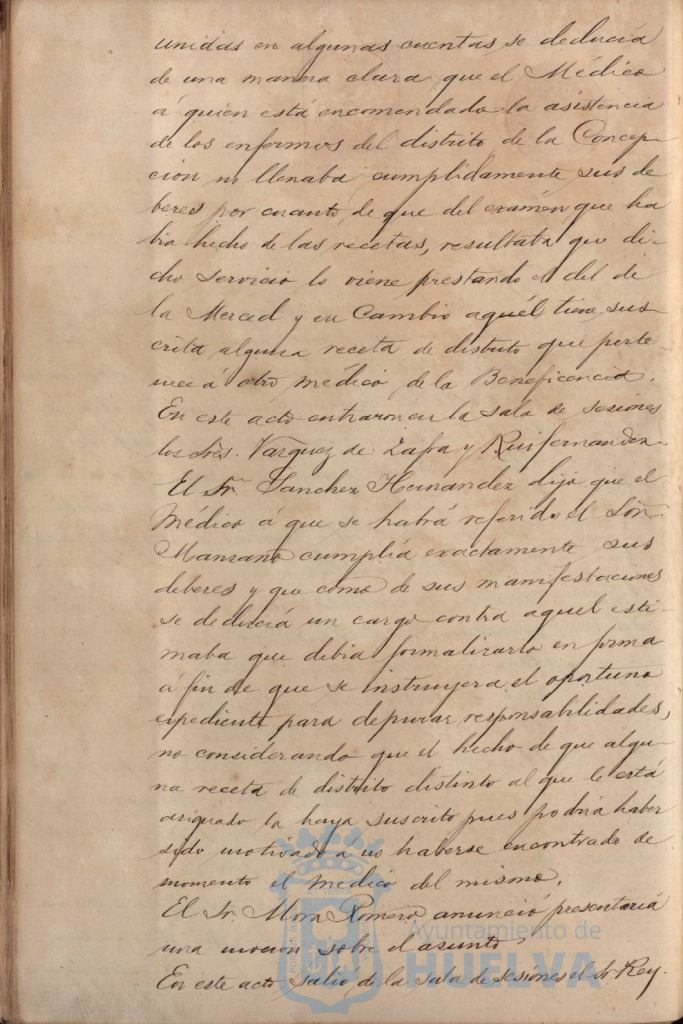 unidas en algunas cuentas, se deducia
de una manera clara, que el Médico
á quien está encomendada la asistencia
de los enfermos del distrito de la Concep-
cion no llenaba cumplidamente sus de
beres por cuanto de que del exámen que ha
bia hecho de las recetas, resultaba que di-
cho servicio lo viene prestando el del de
la Merced y en cambio aquél tiene sus-
crita alguna receta de distrito que perte-
nece á otro médico de la Beneficencia.
En este acto entraron en la sala de sesiones
los Sres. Vazquez de Zafra y Ruifernandez.
El Sr. Sanchez Hernandez dijo que el
Médico á que se habrá referido el Señor
Manzano cumplia exactamente sus
deberes y que como de sus manifestaciones
se deducia un cargo contra aquel esti-
maba que debia formalizarlo en forma
á fin de que se instruyera el oportuno
expediente para depurar responsabilidades,
no considerando que el hecho de que algu-
na receta de distrito distinto al que le está
asignado la haya suscrito pues podria haber
sido motivado a no haberse encontrado de
momento el médico del mismo.
El Sr. Mora Romero anunció presentaria
una mocion sobre el asunto.
En este acto salió de la sala de sesiones el Sr. Rey.
Ayuntamiento de
HUELVA